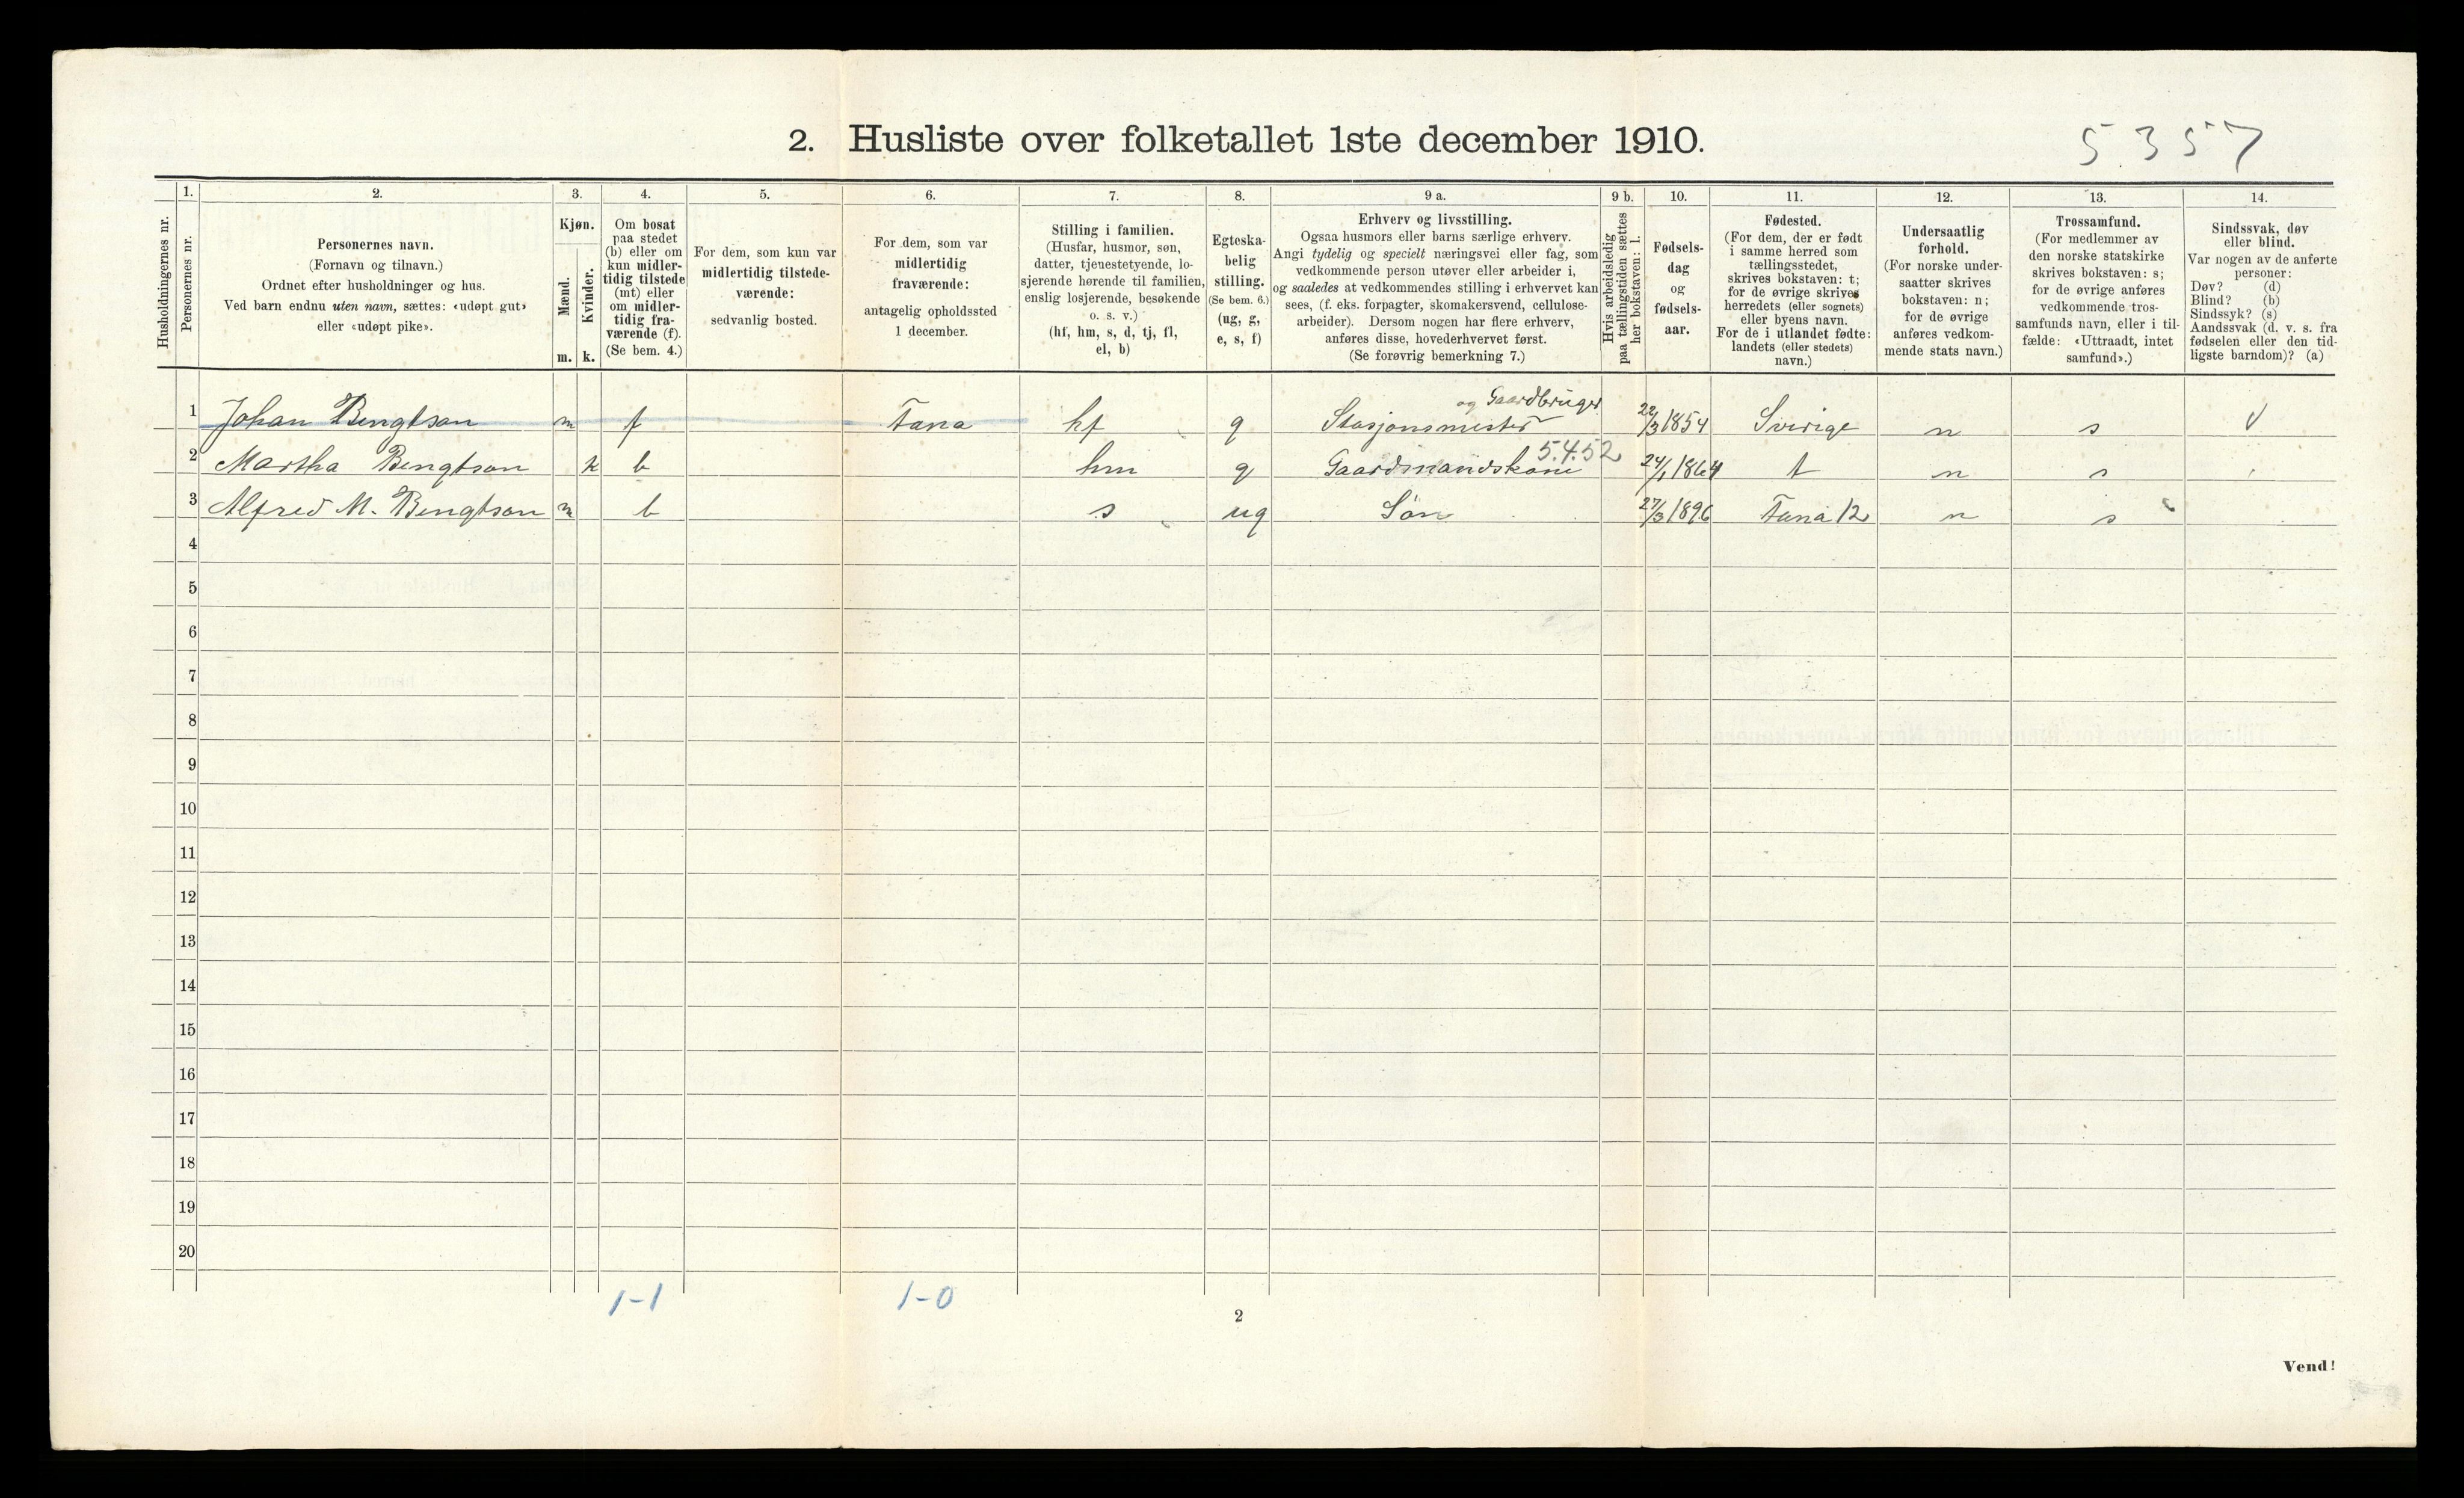 5357
2. Husliste over folketallet 1ste december 1910.
Husholdningernes nr.
1.
Personernes nr.
2.
Personernes navn.
(Fornavn og tilnavn.)
Ordnet efter husholdninger og hus.
Ved barn endnu uten navn, sættes: «udøpt gut»
eller «udøpt pike».
3.
Kjøn.
Mænd.
m.
Kvinder.
k.
4.
Om bosat
paa stedet
(b) eller om
kun midler-
tidig tilstede
(mt) eller
om midler-
tidig fra-
værende (f).
(Se bem. 4.)
5.
For dem, som kun var
midlertidig tilstede-
værende:
sedvanlig bosted.
6.
For dem, som var
midlertidig
fraværende:
antagelig opholdssted
1 december.
7.
Stilling i familien.
(Husfar, husmor, søn,
datter, tjenestetyende, lo-
sjerende hørende til familien,
enslig losjerende, besøkende
o. s. v.)
(hf, hm, s, d, tj, fl,
el, b)
8.
Egteska-
belig
stilling.
(Se bem. 6.)
(ug, g,
e, s, f)
9 a.
Erhverv og livsstilling.
Ogsaa husmors eller barns særlige erhverv.
Angi tydelig og specielt næringsvei eller fag, som
vedkommende person utøver eller arbeider i,
og saaledes at vedkommendes stilling i erhvervet kan
sees, (f. eks. forpagter, skomakersvend, cellulose-
arbeider). Dersom nogen har flere erhverv,
anføres disse, hovederhvervet først.
(Se forøvrig bemerkning 7.)
9 b.
Hvis arbeidsledig
paa tællingstiden sættes
her bokstaven: l.
10.
Fødsels-
dag
og
fødsels-
aar.
11.
Fødested.
(For dem, der er født
i samme herred som
tællingsstedet,
skrives bokstaven: t;
for de øvrige skrives
herredets (eller sognets)
eller byens navn.
For de i utlandet fødte:
landets (eller stedets)
navn.)
12.
Undersaatlig
forhold.
(For norske under-
saatter skrives
bokstaven: n;
for de øvrige
anføres vedkom-
mende stats navn.)
13.
Trossamfund.
(For medlemmer av
den norske statskirke
skrives bokstaven: s;
for de øvrige anføres
vedkommende tros-
samfunds navn, eller i til-
fælde: «Uttraadt, intet
samfund».)
14.
Sindssvak, døv
eller blind.
Var nogen av de anførte
personer:
Døv? (d)
Blind? (b)
Sindssyk? (s)
Aandssvak (d. v. s. fra
fødselen eller den tid-
ligste barndom)? (a)
og Gaardbruger
1 Johan Bengtson m f Tana hf g Stasjonsmester 22/3 1854 Sverige n s
5.4.52
2 Martha Bengtson k b hm g Gaardmandskone 24/1 1864 t n s
3 Alfred M. Bengtson m b s ug Søn 27/3 1896 Tana 12 n s
4
5
6
7
8
9
10
11
12
13
14
15
16
17
18
19
20
1-1 1-0
2
Vend!